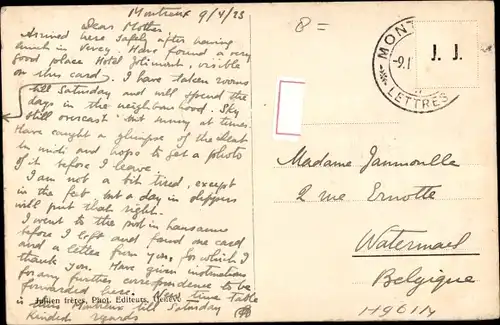 Montreux 9/4/23
Dear Mother
Arrived here safely after having
lunch in Vevey. Have found a very
good place Hotel Jolimont, visible
on this card. I have taken rooms
till Saturday and will spend the
days in the neighbourhood. Sky
still overcast but sunny at times.
Have caught a glimpse of the
du midi and hope to get a photo
of it before I leave.
I am not a bit tired, except
in the feet but a day in slippers
will put that right.
I went to the post in Lausanne
before I left and found one card
and a letter from you, for which I
thank you. Have given instructions
for any further correspondence to be
forwarded here. time table
is thus Montreux till Saturday
kindest regards
Jullien frères, Phot. Editeurs, Genève
8 =
MONT
-9.
LETTRES
J. J.
Madame Jannoulle
2 rue Ernotte
Watermael
Belgique